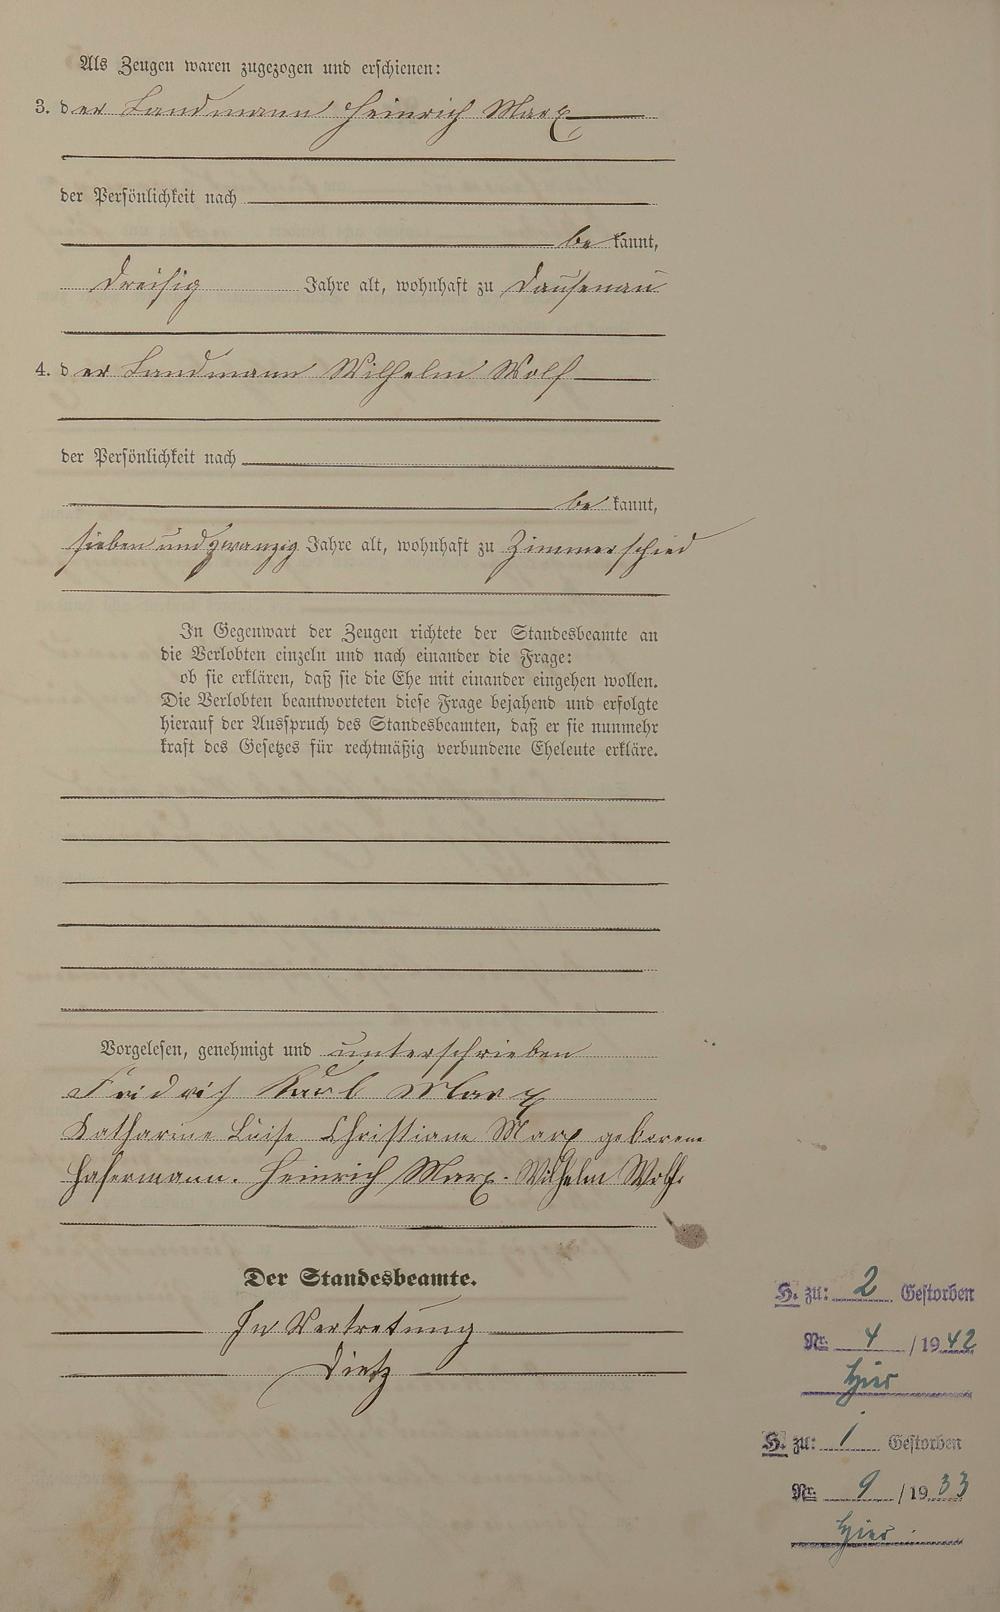 Als Zeugen waren zugezogen und erschienen:
3. der Landmann Heinrich Marx
der Persönlichkeit nach
bekannt,
dreißig Jahre alt, wohnhaft zu Dausenau
4. der Landmann Wilhelm Wolf
der Persönlichkeit nach
bekannt,
sieben und zwanzig Jahre alt, wohnhaft zu Zimmerschied
In Gegenwart der Zeugen richtete der Standesbeamte an
die Verlobten einzeln und nach einander die Frage:
ob sie erklären, daß sie die Ehe mit einander eingehen wollen.
Die Verlobten beantworteten diese Frage bejahend und erfolgte
hierauf der Ausspruch des Standesbeamten, daß er sie nunmehr
kraft des Gesetzes für rechtmäßig verbundene Eheleute erkläre.
Vorgelesen, genehmigt und unterschrieben
Fridrich Karl Marx
Katharine Luise Christiane Marx geborene
Hasermann. Heinrich Marx. Wilhelm Wolf.
Der Standesbeamte.
In Vertretung
Dietz
H. zu: 2 Gestorben
Nr. 4 / 1942
hier
H. zu: 1 Gestorben
Nr. 9 / 1933
hier